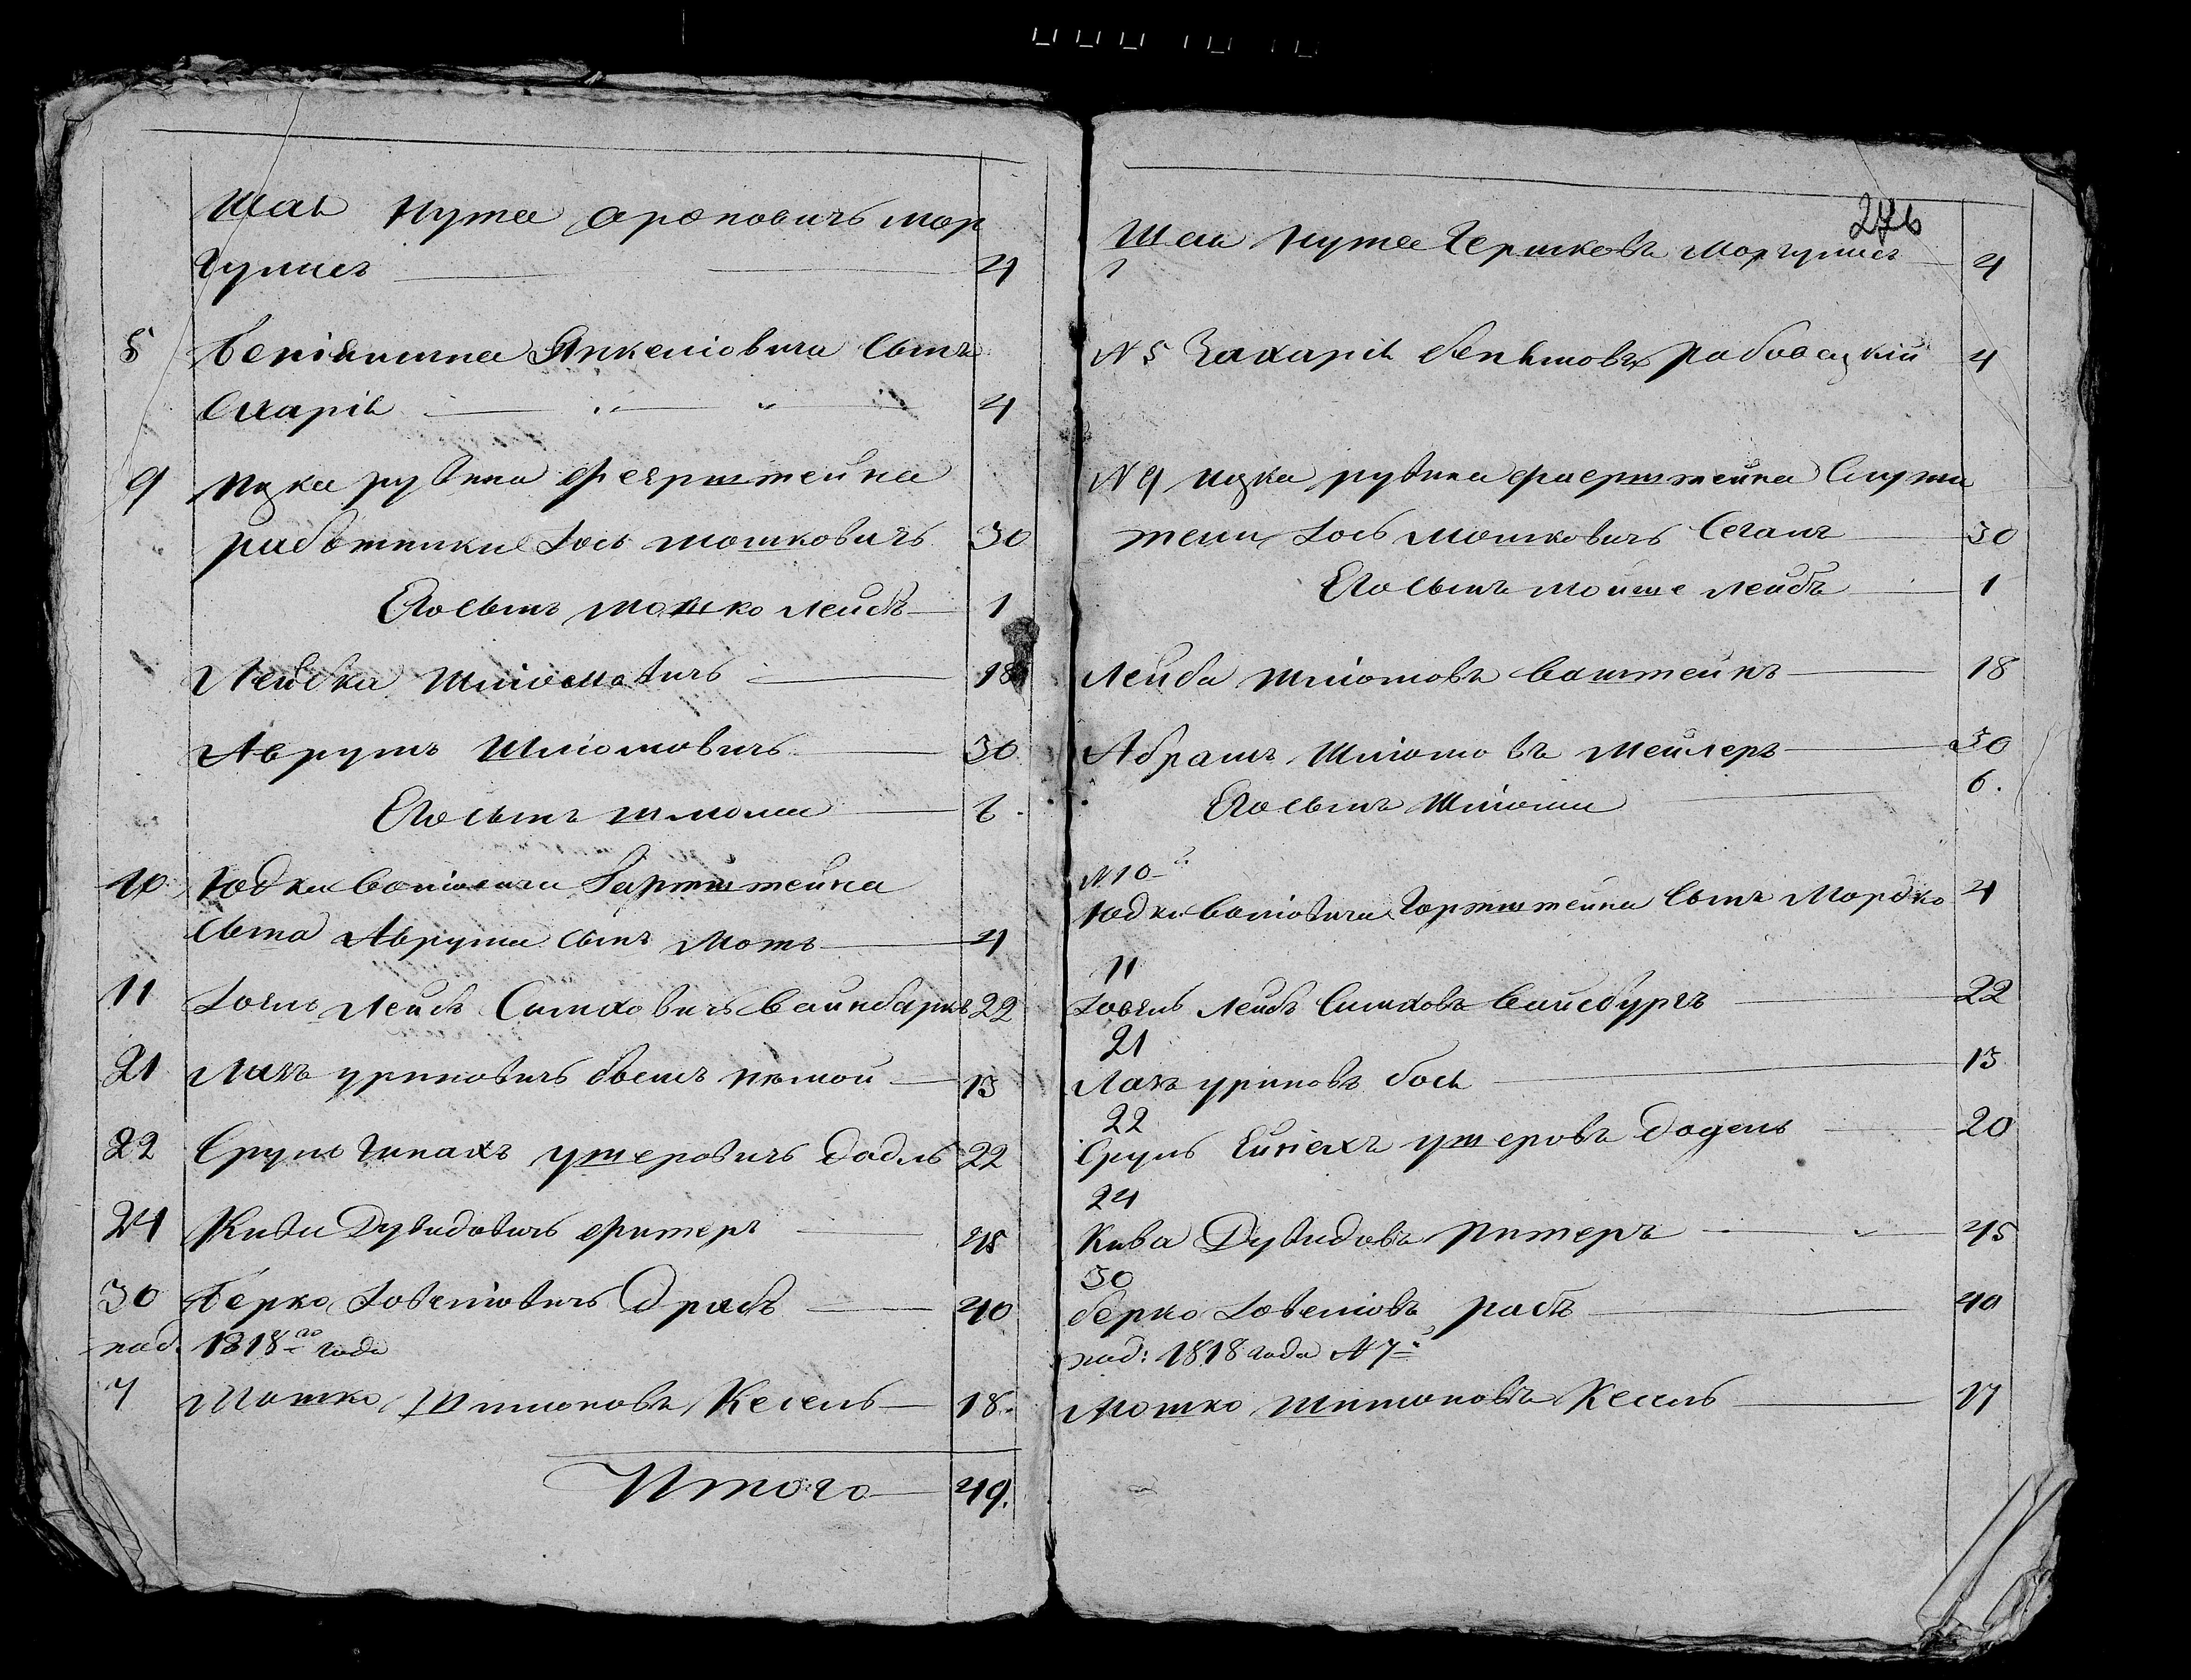 Шая Нута Ароновичъ Мар
гулисъ 4
5 Беніямина Янкеліовича сынъ
Схарія 4
9 Ицка Рувина Феерштейна
работники Іось Мошковичъ 30
Его сынъ Мошко Лейбъ 1
Лейбка Шліомовичъ 18
Аврумъ Шліомовичъ 30
Его сынъ Шмоли 6.
10 Юдки Вольовича Гартштейна
сына Аврума сынъ Мотъ 4
11 Іоель Лейбъ Симховичъ Вайнбаръ 22
21 Лахъ Уриновичъ нѣмой 13
22 Сруль Ушеровичъ Додль 22
24 Киви Дувидовичъ Фитеръ 45
30 Берко Іовеліовичъ Драбъ 40
1818го года
7 Мошко Шимоновъ Кесель 18.
Итого 49.
276
Шая Нута Гершковъ Моргулисъ 4
N 5 Захарія Рабовецкій 4
N 9 Ицка Рувина Фаерштейна служи
тели Іось Мошковичъ Сегалъ 30
Его сынъ Мойше Лейбъ 1
Лейба Шліомовъ Ваштейнъ 18
Абрамъ Шліомовъ Мейлеръ 30
Его сынъ Шліоми 6.
N 10й
Юдки Вольовича Гартштейна сынъ Мордко 4
11
Іовель Лейбъ Симховъ Вайсбургъ 22
21
Лахъ Уриновъ 13
22
Сруль Ушеровъ Додель 20
24
Кива Дувидовъ Ритеръ 45
30
Берко Іовеліовъ Рабъ 40
1818 года N 7й
Мошко Шимоновъ Кесель 17